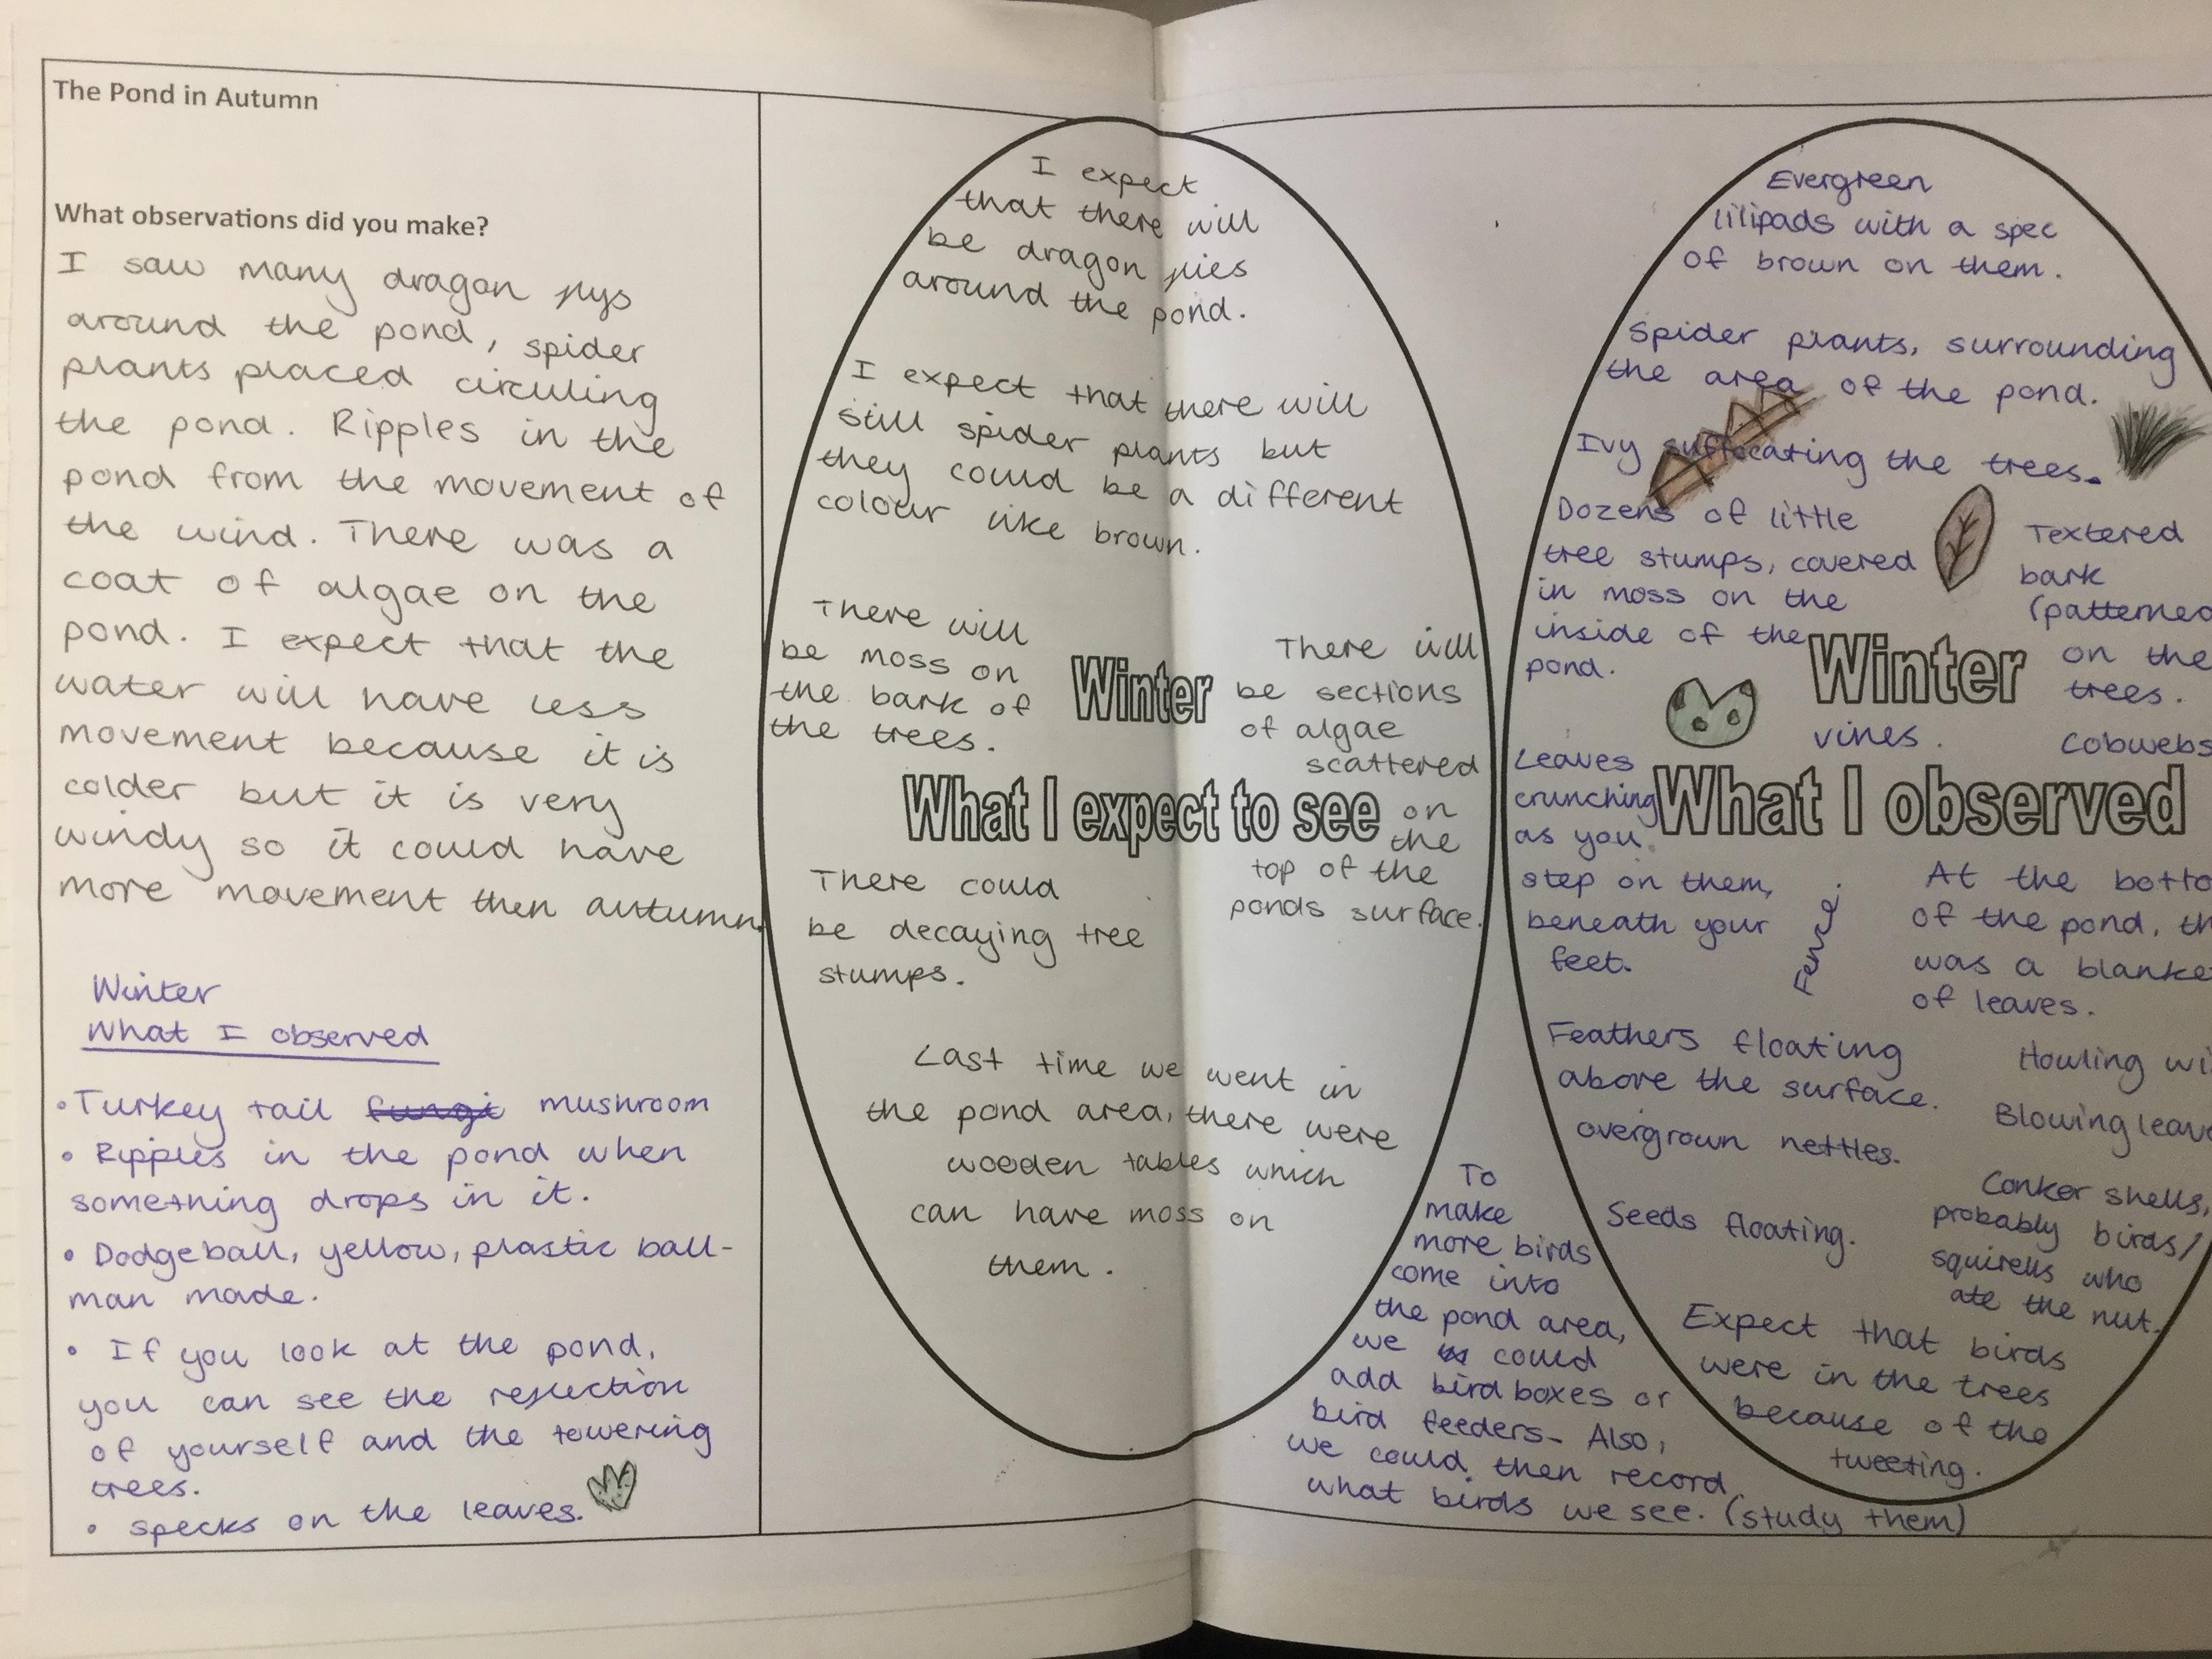 The Pond in Autumn
What observations did you make?
I saw many dragon flys
around the pond, spider
plants placed circuling
the pond. Ripples in the
pond from the movement of
the wind. There was a
coat of algae on the
pond. I expect that the
water will have less
movement because it is
colder but it is very
windy so it could have
more movement then autumn.
Winter
What I observed
• Turkey tail fungi mushroom
• Ripples in the pond when
something drops in it.
• Dodgeball, yellow, plastic ball-
man made.
• If you look at the pond,
you can see the reflection
of yourself and the towering
trees.
• specks on the leaves.
I expect
that there will
be dragon flies
around the pond.
I expect that there will
still spider plants but
they could be a different
colour like brown.
There will
be moss on
the bark of
the trees.
Winter
There will
be sections
of algae
scattered
on
the
top of the
ponds surface.
What I expect to see
There could
be decaying tree
stumps.
Last time we went in
the pond area, there were
wooden tables which
can have moss on
them.
To
make
more birds
come into
the pond area,
we could
add bird boxes or
bird feeders- Also,
we could then record
what birds we see. (study them)
Evergreen
lilipads with a spec
of brown on them.
Spider plants, surrounding
the area of the pond.
Ivy suffocating the trees.
Dozens of little
tree stumps, covered
in moss on the
inside of the
pond.
Textered
bark
(patterned
on the
trees.
Winter
vines.
Cobwebs
What I observed
Leaves
crunching
as you
step on them,
beneath your
feet.
Fence.
At the botto
of the pond, th
was a blanke
of leaves.
Feathers floating
above the surface.
Howling wi
Blowing leav
overgrown nettles.
Seeds floating.
Conker shells,
probably birds/
squirells who
ate the nut.
Expect that birds
were in the trees
because of the
tweeting.